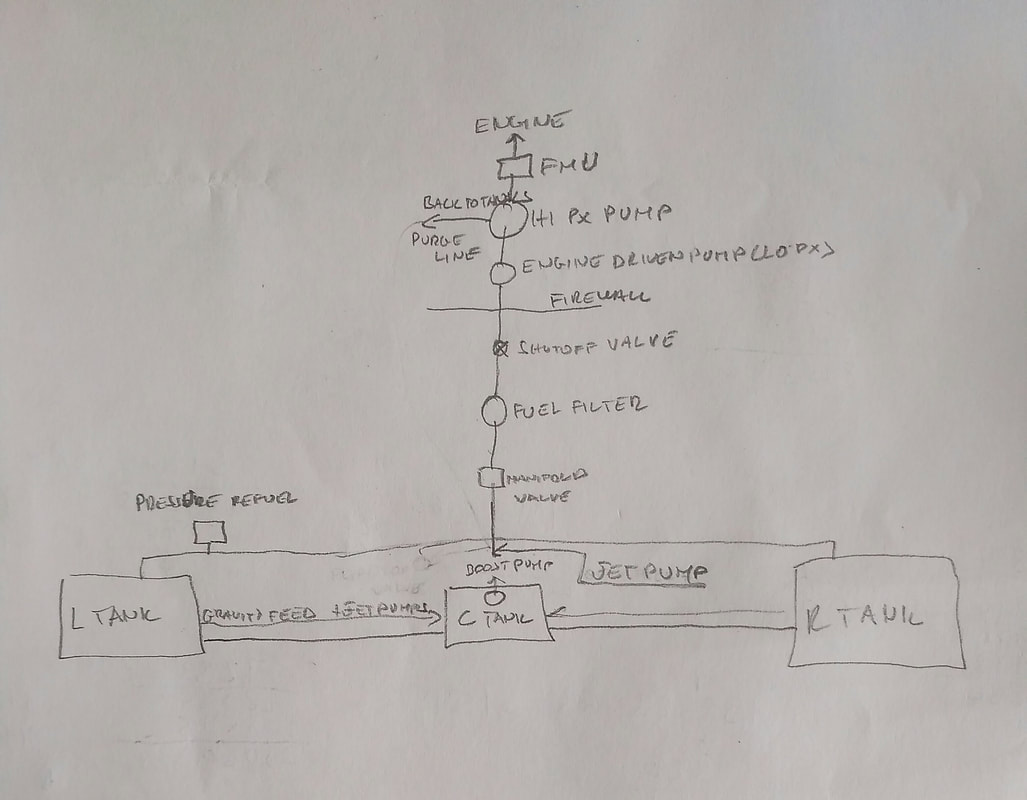 ENGINE
FMU
BACK TO TANKS
HI PX PUMP
PURGE
LINE
ENGINE DRIVEN PUMP (LO PX)
FIREWALL
SHUTOFF VALVE
FUEL FILTER
MANIFOLD
VALVE
PRESSURE REFUEL
BOOST PUMP
JET PUMP
L TANK
GRAVITY FEED + JET PUMPS
C TANK
R TANK